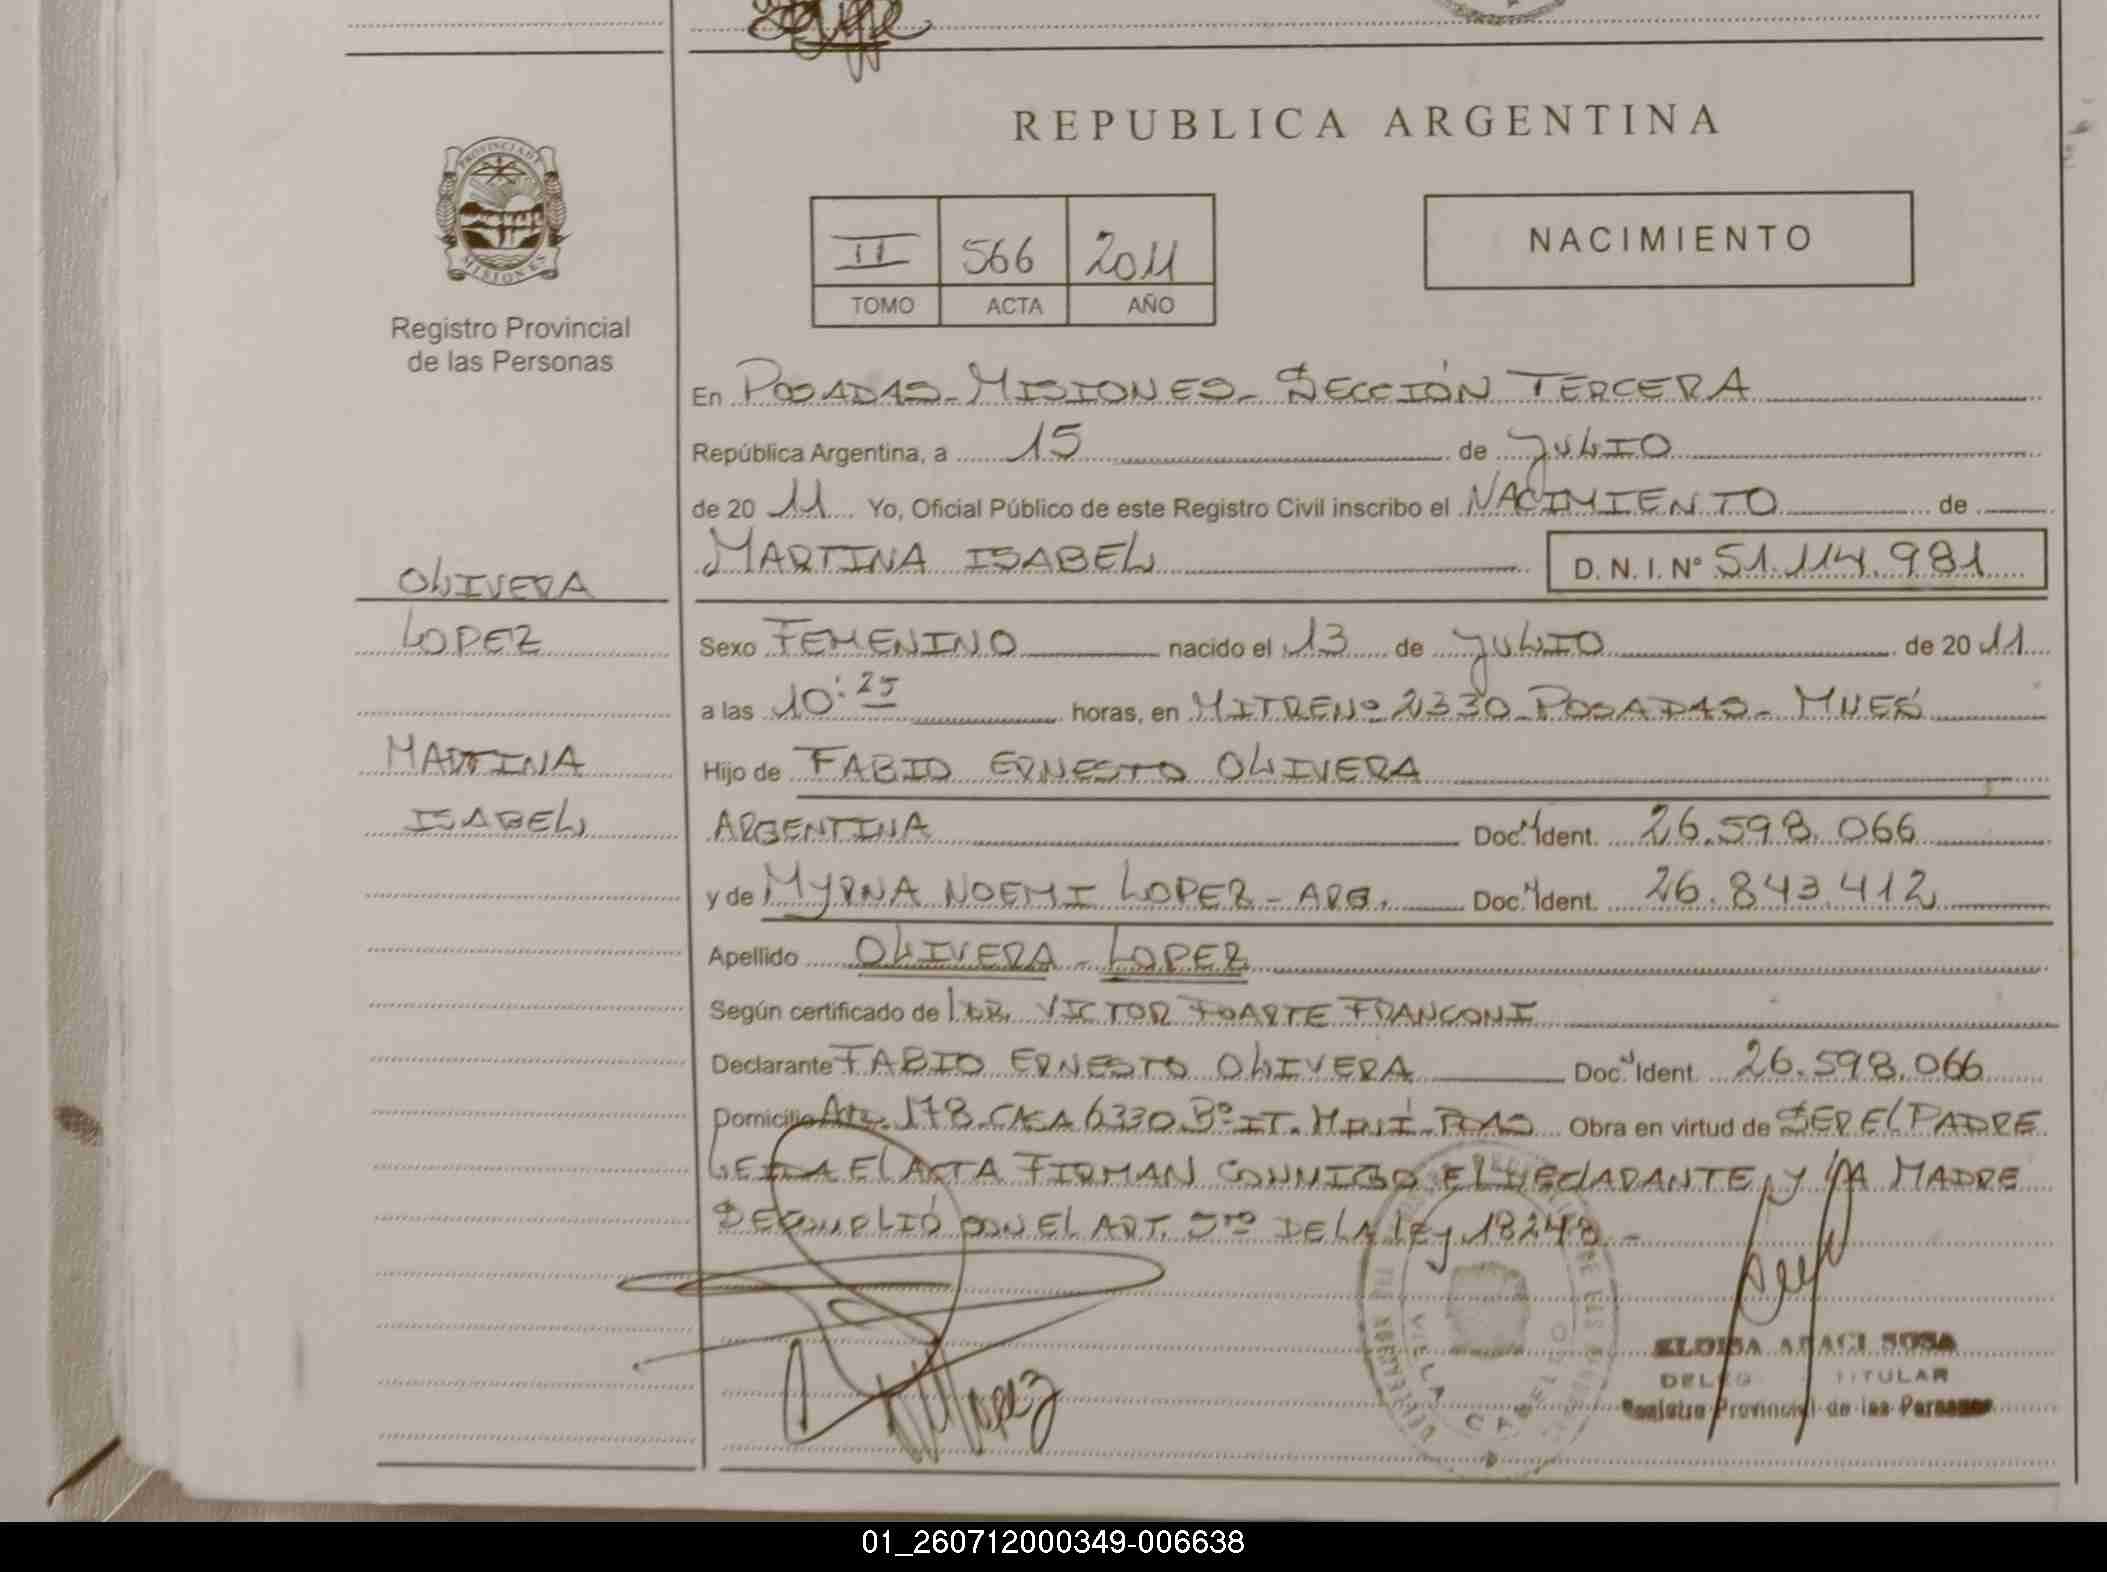 REPUBLICA ARGENTINA
PROVINCIA DE
MISIONES
Registro Provincial
de las Personas
II 566 2011
TOMO ACTA AÑO
NACIMIENTO
En POSADAS - MISIONES - SECCIÓN TERCERA
República Argentina, a 15 de JULIO
de 20 11 Yo, Oficial Público de este Registro Civil inscribo el NACIMIENTO de
MARTINA ISABEL D. N. I. Nº 51.114.981
OLIVERA
LOPEZ
MARTINA
ISABEL
Sexo FEMENINO nacido el 13 de JULIO de 20 11
a las 10:25 horas, en MITRE Nº 2330 - POSADAS - MNES
Hijo de FABIO ERNESTO OLIVERA
ARGENTINA Doc. Ident. 26.598.066
y de MYRNA NOEMI LOPEZ - ARG. Doc. Ident. 26.843.412
Apellido OLIVERA - LOPEZ
Según certificado de VICTOR DUARTE FRANCONI
Declarante FABIO ERNESTO OLIVERA Doc. Ident. 26.598.066
Domicilio 178 - CASA 6330 Bº IT. MINÍ - PDAS Obra en virtud de SER EL PADRE
LEIDA EL ACTA FIRMAN CONMIGO EL DECLARANTE Y LA MADRE
SE CUMPLIÓ CON EL ART. 5to DE LA LEY 18248 -
Lopez
VILLA CABELLO
ELOISA ARACI SOSA
TITULAR
Registro Provincial de las Personas
01_260712000349-006638